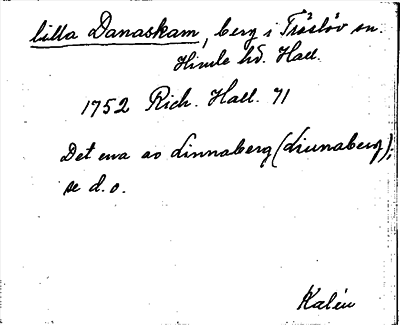 lilla Danaskam, berg i Tröslöv sn.
Himle hd. Hall.
1752 Rich. Hall. 71
Det ena av Linnaberg (Liunaberg),
se d.o.
Kalén